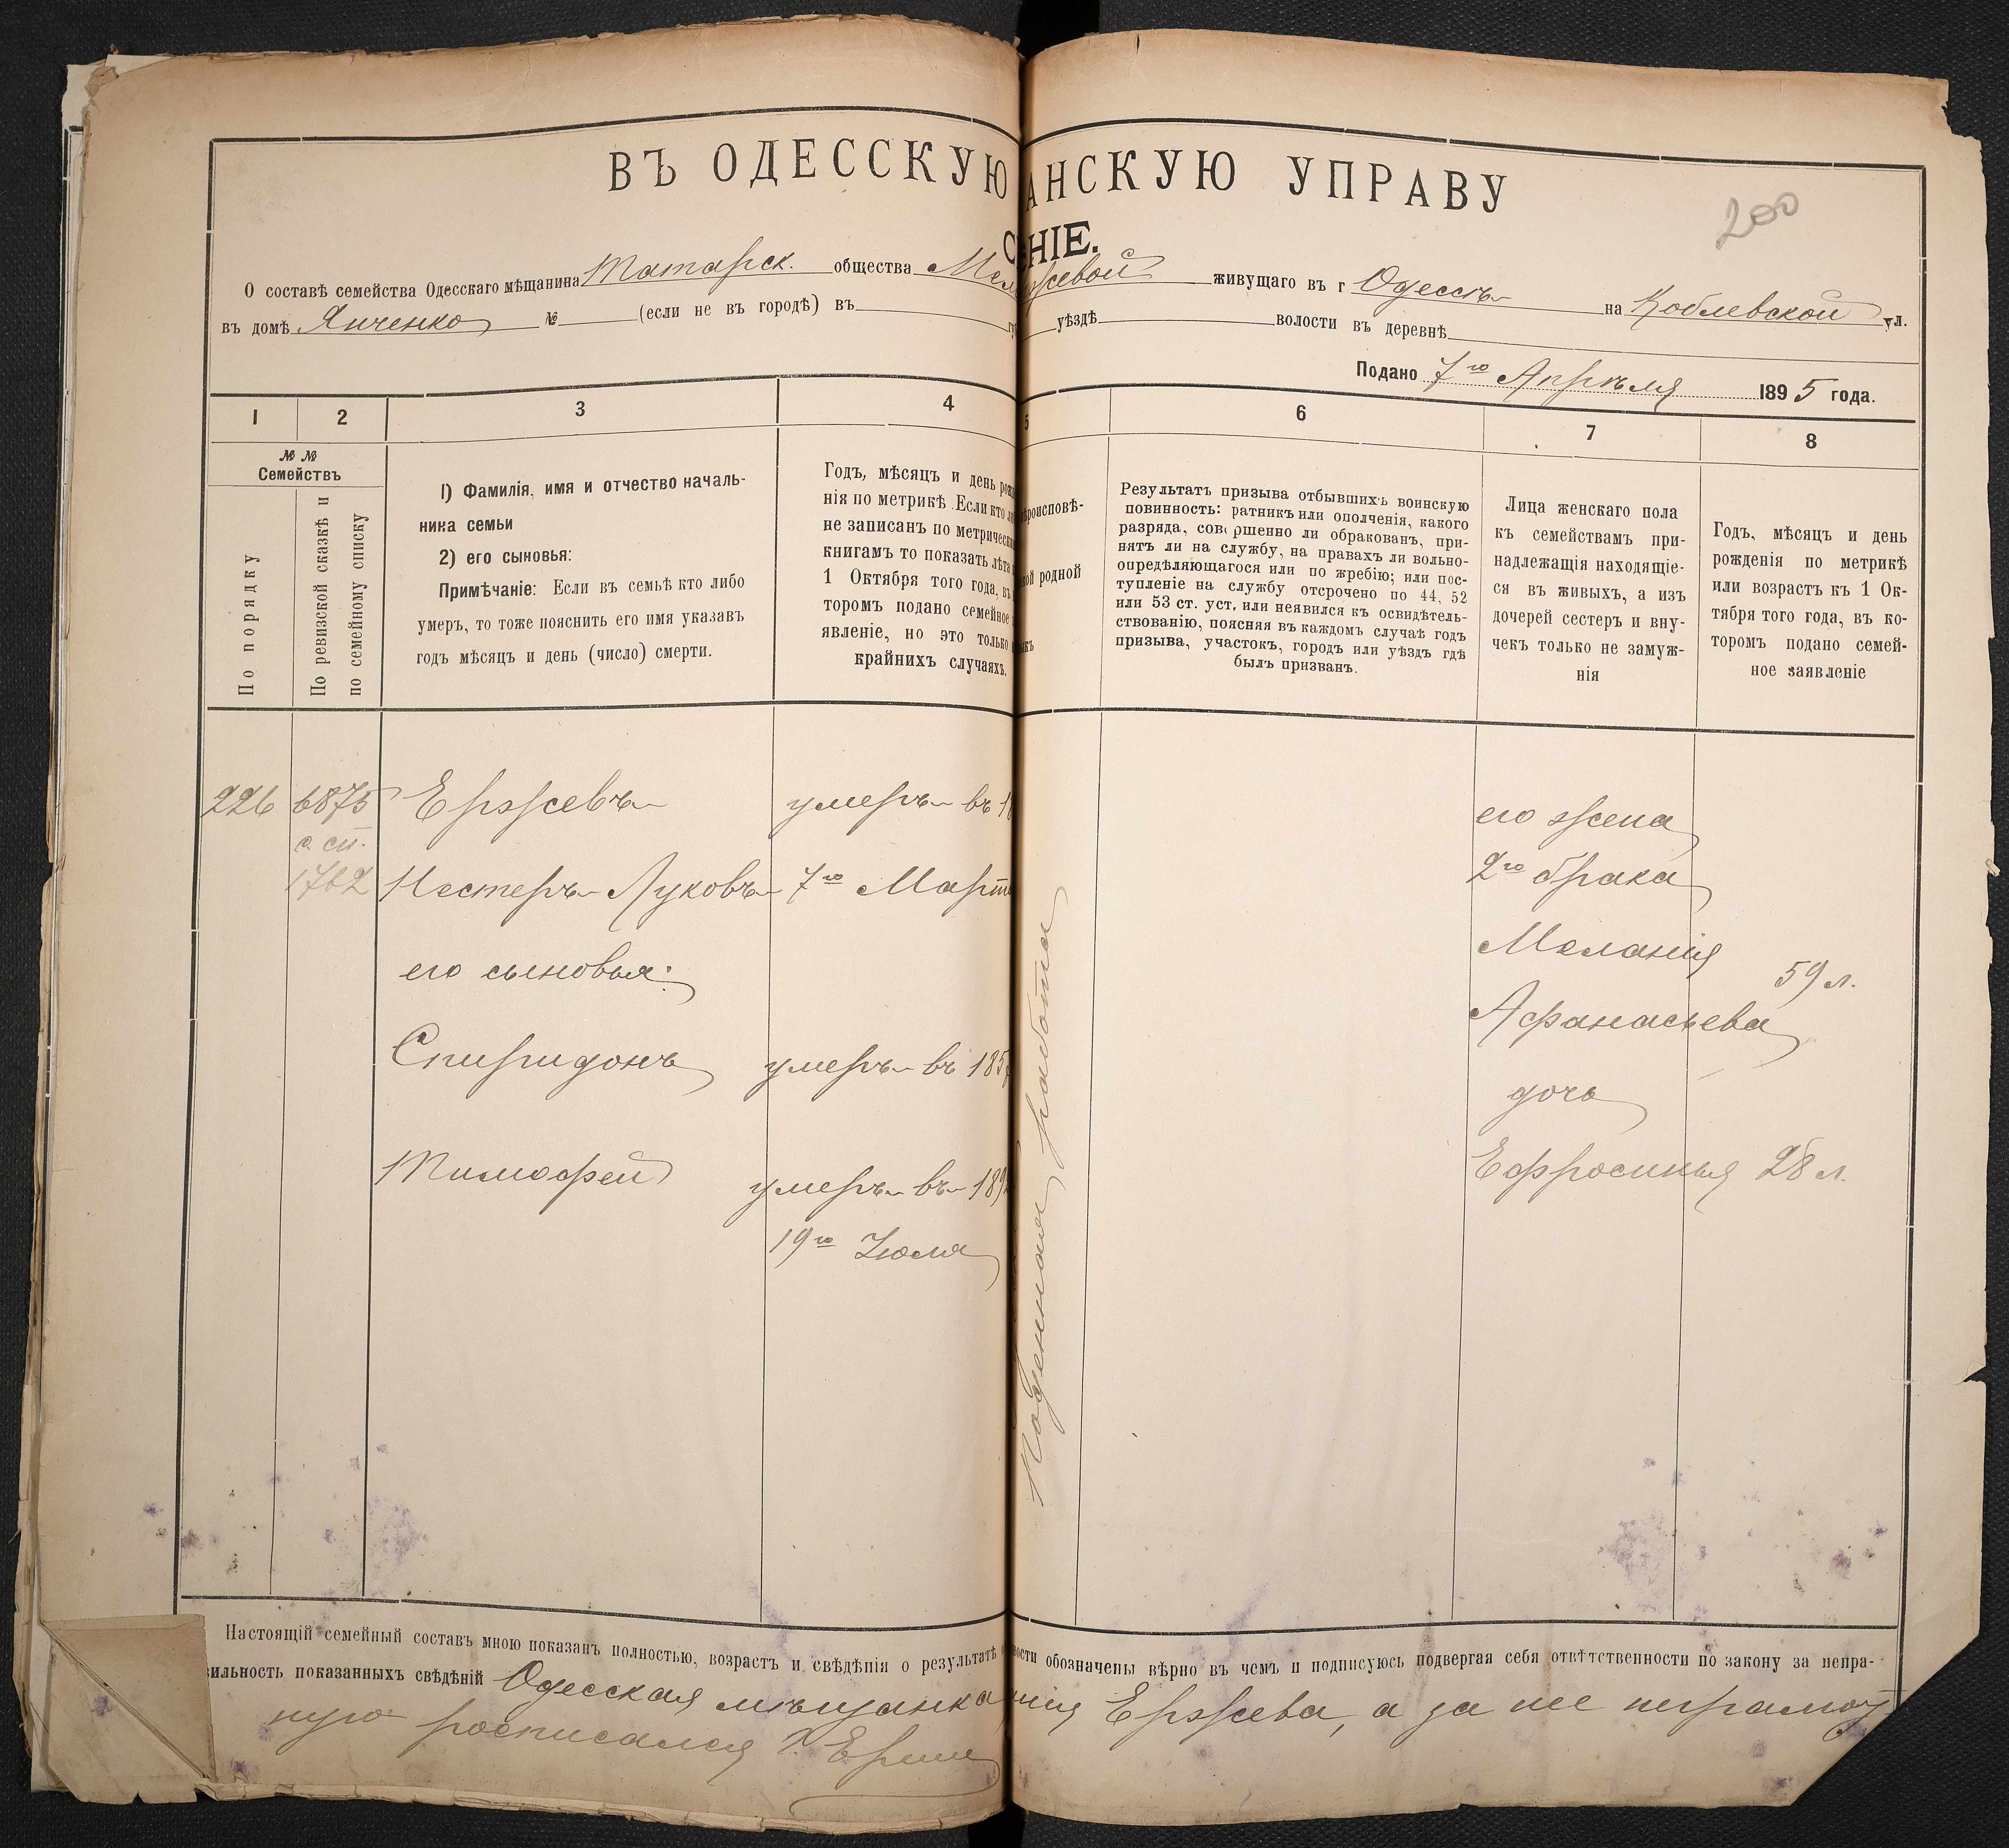 ВЪ ОДЕССКУЮ АНСКУЮ УПРАВУ
НІЕ.
200
О составѣ семейства Одесскаго мѣщанина Татарск. общества живущаго въ г Одессѣ на Коблевской ул.
въ домѣ Янченко № (если не въ городѣ) въ уѣздѣ волости въ деревнѣ
Подано 7го Апрѣля 1895 года.
1 2 3 4 5 6 7 8
№ №
Семействъ
По порядку
По ревизской сказкѣ и
по семейному списку
1) Фамилія, имя и отчество началь-
ника семьи
2) его сыновья:
Примѣчаніе: Если въ семьѣ кто либо
умеръ, то тоже пояснить его имя указавъ
годъ мѣсяцъ и день (число) смерти.
Годъ, мѣсяцъ и день рож
нія по метрикѣ. Если кто ли
не записанъ по метрически
книгамъ то показать лѣта
1 Октября того года, въ
торомъ подано семейное
явленіе, но это только
крайнихъ случаяхъ.
роисповѣ-
ой родной
Результатъ призыва отбывшихъ воинскую
повинность: ратникъ или ополченія, какого
разряда, совершенно ли обракованъ, при-
нятъ ли на службу, на правахъ ли вольно-
опредѣляющагося или по жребію; или пос-
тупленіе на службу отсрочено по 44, 52
или 53 ст. уст. или неявился къ освидѣтель-
ствованію, поясняя въ каждомъ случаѣ годъ
призыва, участокъ, городъ или уѣздъ гдѣ
былъ призванъ.
Лица женскаго пола
къ семействамъ при-
надлежащія находящіе-
ся въ живыхъ, а изъ
дочерей сестеръ и вну-
чекъ только не замуж-
нія
Годъ, мѣсяцъ и день
рожденія по метрикѣ
или возрастъ къ 1 Ок-
тября того года, въ ко-
торомъ подано семей-
ное заявленіе
226 6875 Ержевъ умеръ въ 18
с сп.
1762 Нестеръ Луковъ 7го Март
его сыновья:
Спиридонъ умеръ въ 185
Тимофей умеръ въ 189
19го Іюля
Поденная работа
его жена
2го брака
Меланія
59 л.
Афанасьева
дочь
Ефросинья 28 л.
Настоящій семейный составъ мною показанъ полностью, возрастъ и свѣдѣнія о результатѣ ности обозначены вѣрно въ чемъ и подписуюсь подвергая себя отвѣтственности по закону за непра-
вильность показанныхъ свѣдѣній Одесская мѣщанка нія Ержева, а за нее неграмот
ную росписался